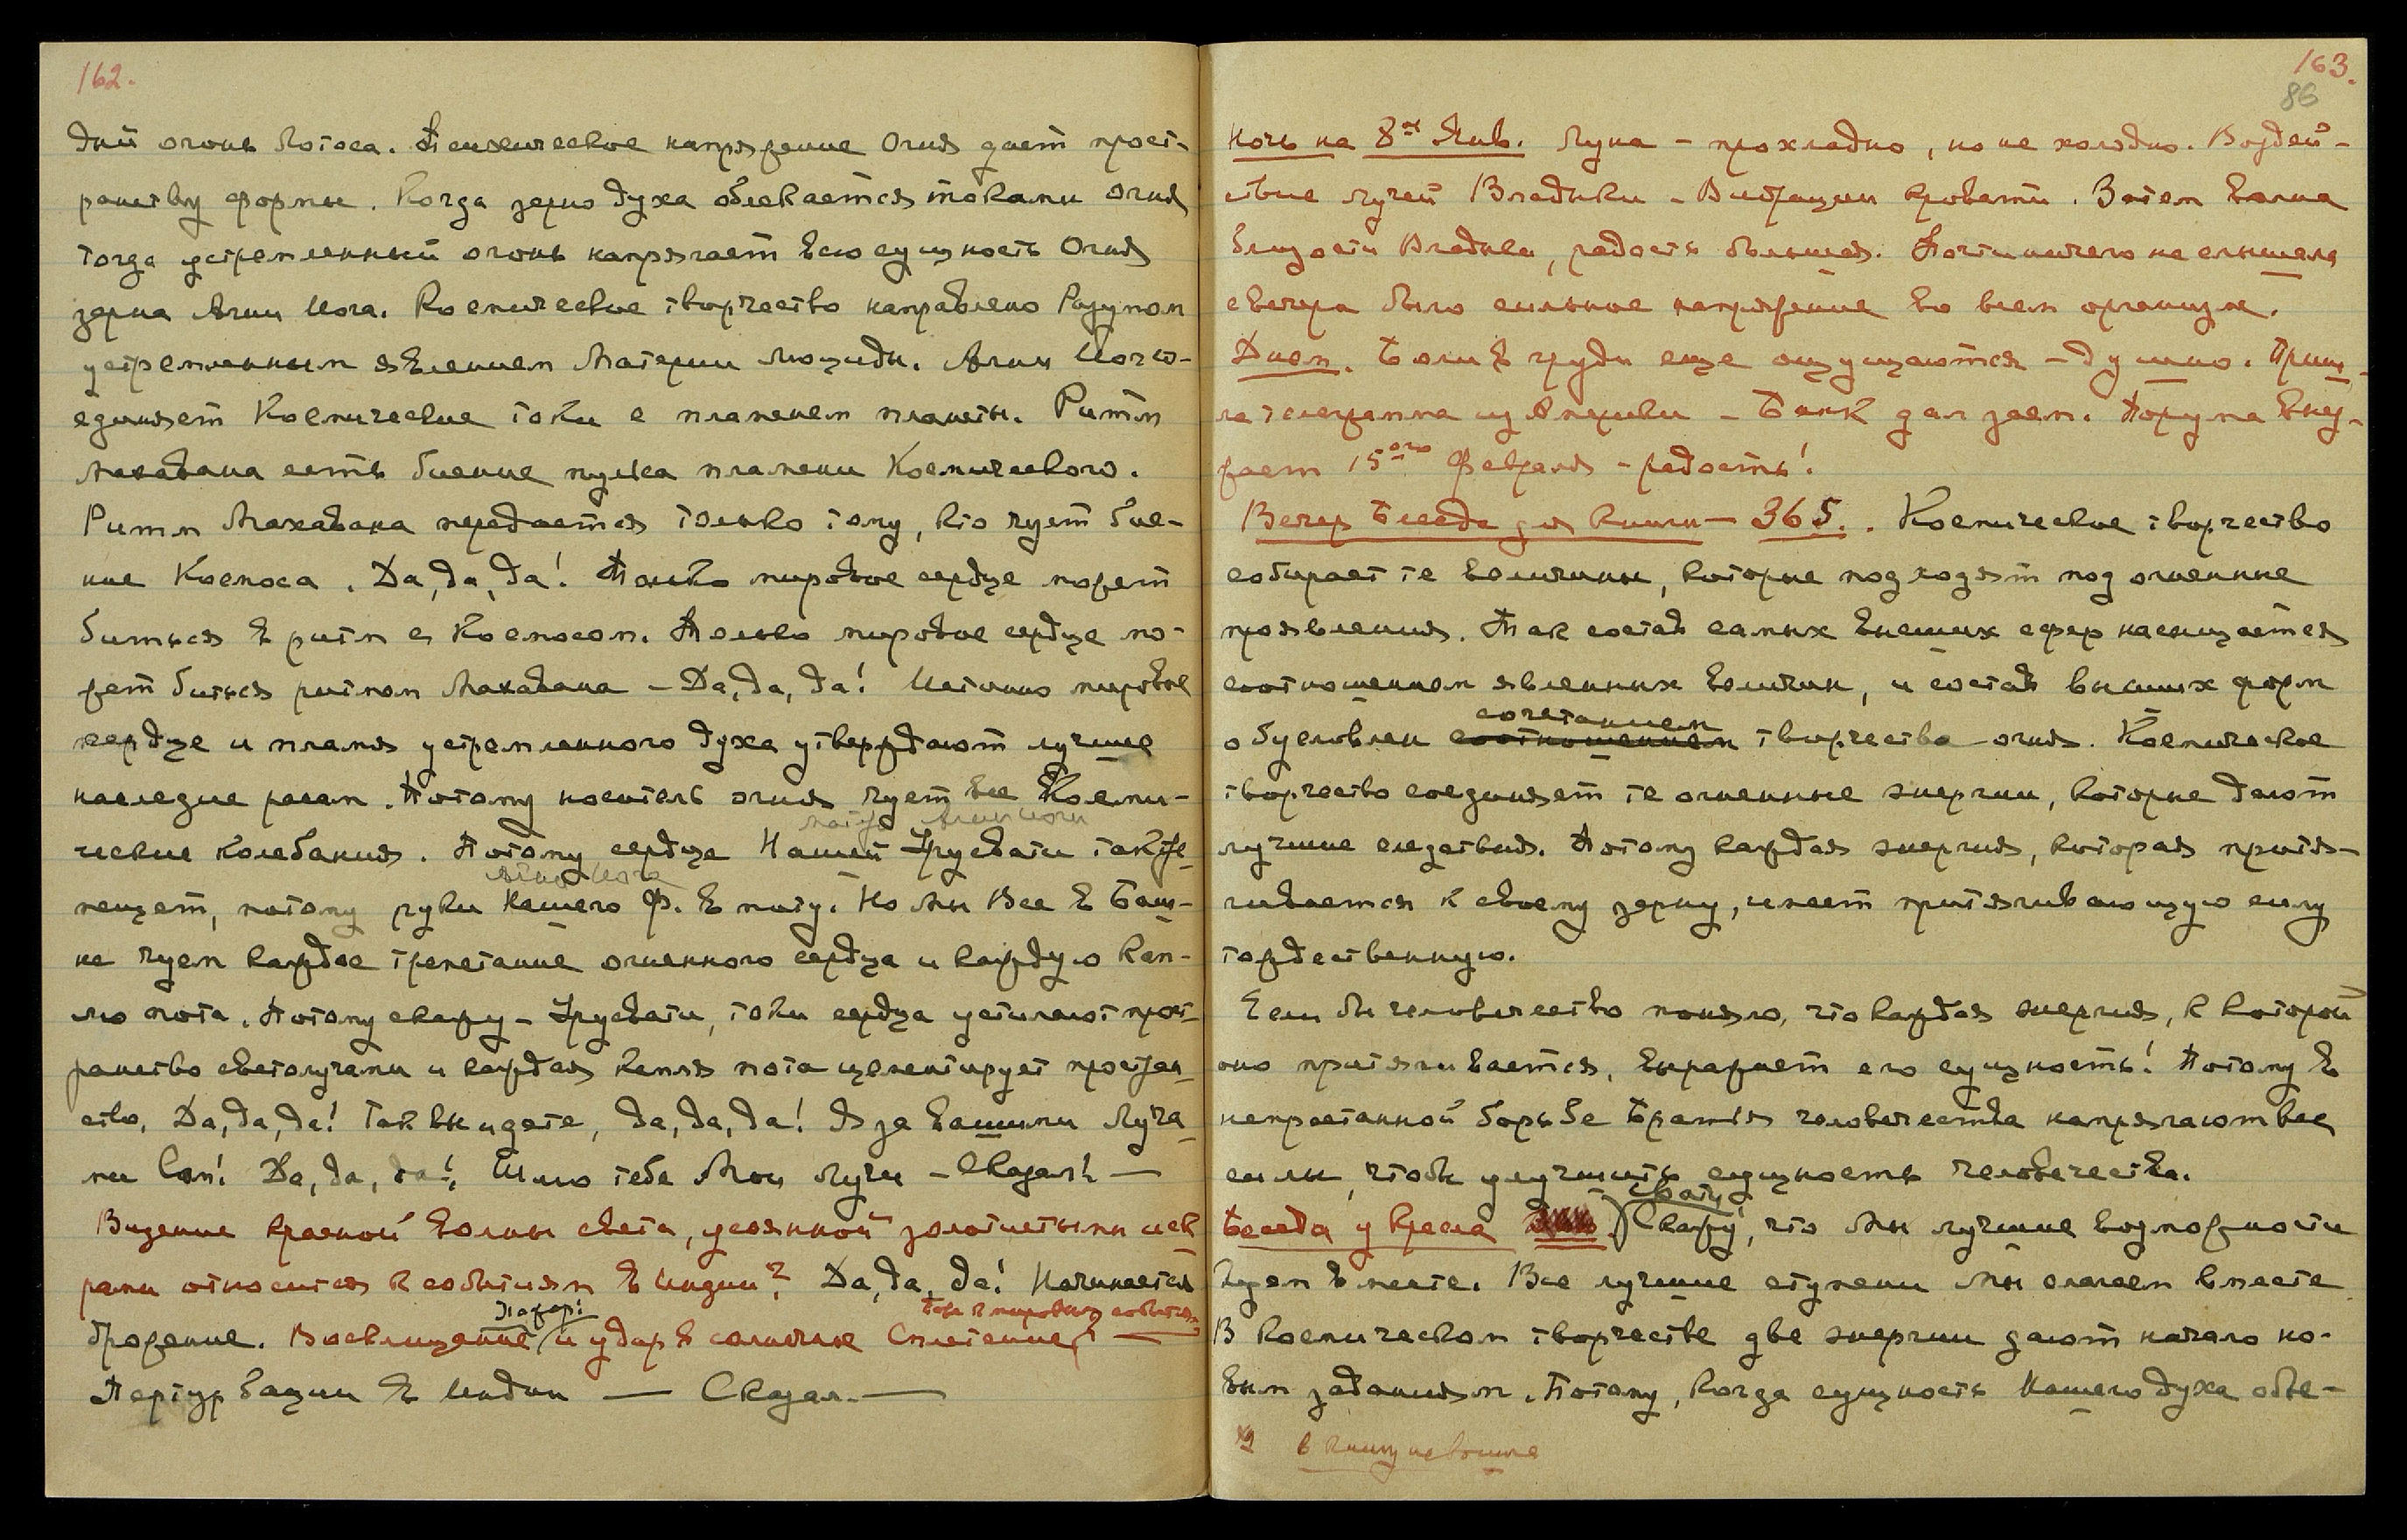 162.
дый огонь Лотоса. Психическое напряжение Огня дает прост-
ранству формы. Когда зерно духа облекается токами огня
тогда устремленный огонь напрягает всю сущность Огня
зерна Агни Иога. Космическое творчество направлено Разумом
устремленным явлением Материи Люциды. Агни Иог со-
единяет Космические токи с пламенем планеты. Ритм
Махавана есть биение пульса пламени Космического.
Ритм Махавана передается только тому, кто чует бие-
ние Космоса. Да, да, да! Только мировое сердце может
биться в ритм с Космосом. Только мировое сердце мо-
жет биться ритмом Махавана – Да, да, да! Истинно мировое
сердце и пламя устремленного духа утверждают лучшее
наследие расам. Потому носитель огня чует все Косми-
Матери Агни Иоги
ческие колебания. Потому сердце Нашей Урусвати так тре-
Агни Иога
пещет, потому руки Нашего Ф. в поту. Но Мы Все в Баш-
не чуем каждое трепетание огненного сердца и каждую кап-
лю пота. Потому скажу – Урусвати, токи сердца устилают прост-
ранство светолучами и каждая капля пота цементирует простран-
ство. Да, да, да! Так вы идете, да, да, да! Я за вашими Луча-
ми Сам! Да, да, да! Шлю тебе Мои Лучи – Сказал! —
Видение красной волны света, усеянной золотистыми иск
рами относится к событиям в Индии? Да, да, да! Начинается
Пожар!
также к мировым событиям
брожение. Восклицание и удар в солнечное Сплетение? —
Пертурбации в Индии — Сказал. —
163.
86
Ночь на 8ое Янв. Луна – прохладно, но не холодно. Воздей-
ствие лучей Владыки – Вибрации кровати. Затем волна
близости Владыки, радость большая. Почти ничего не слышала
с вечера было сильное напряжение во всем организме.
Днем. Боли в груди еще ощущаются – душно. Приш-
ла телеграмма из Америки – Банк дал заем. Порума выез-
жает 15ого Февраля – радость!
Вечер Беседа для книги – 365. Космическое творчество
собирает те величины, которые подходят под огненные
проявления. Так состав самых внешних сфер насыщается
соотношением явленных величин, и состав высших форм
сочетанием
обусловлен соотношением творчества огня. Космическое
творчество соединяет те огненные энергии, которые дают
лучшие следствия. Потому каждая энергия, которая притя-
гивается к своему зерну, имеет притягивающую силу
тождественную.
Если бы человечество поняло, что каждая энергия, к которой
оно притягивается, выражает его сущность! Потому в
непрестанной борьбе Братья человечества напрягают все
силы, чтобы улучшить сущность человечества.
Беседа у кресла Скажу, что Мы лучшие возможности
куем вместе. Все лучшие ступени Мы слагаем вместе
В космическом творчестве две энергии дают начало но-
вым заданиям. Потому, когда сущность Нашего духа объе-
в книгу не вошло